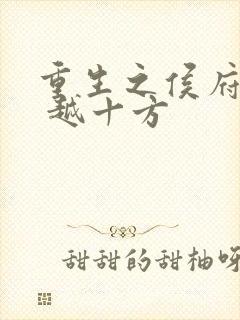 重生之侯府
越十方
甜甜的甜柚呀